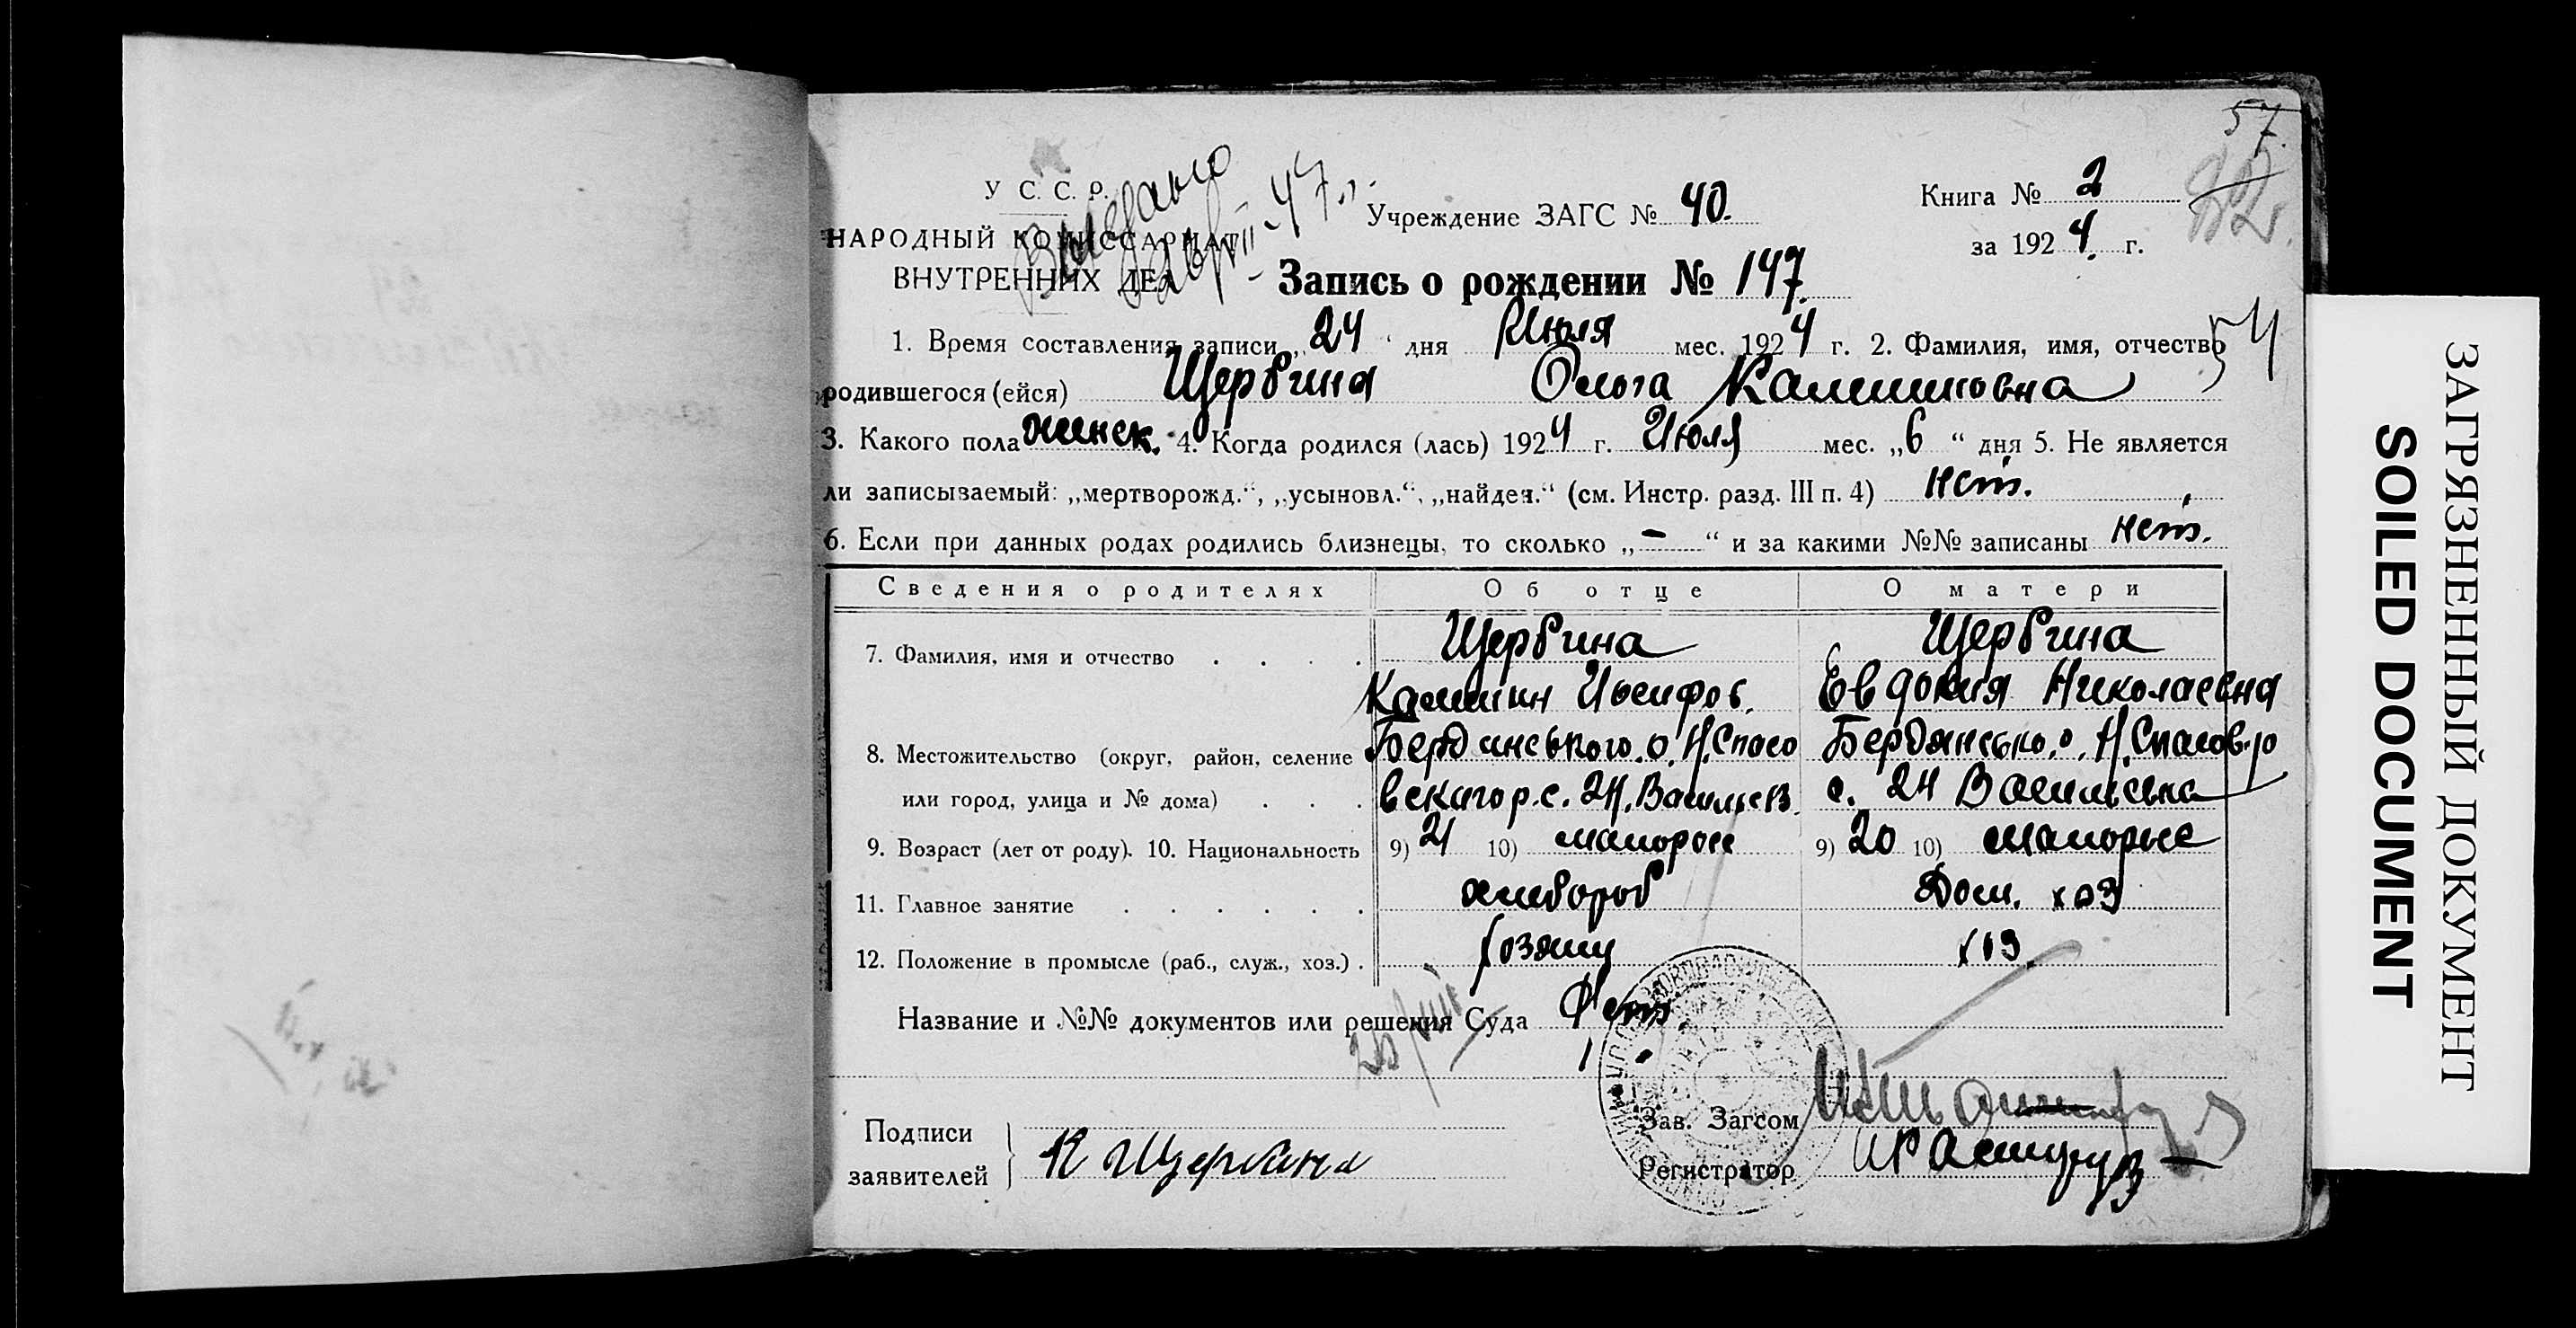 57.
У. С. С. Р.
НАРОДНЫЙ КОМИССАРИАТ
ВНУТРЕННИХ ДЕЛ
Учреждение ЗАГС № 40.
Книга № 2
за 1924. г.
Запись о рождении № 147.
1. Время составления записи „24“ дня Июля мес. 1924 г. 2. Фамилия, имя, отчество
родившегося (ейся) Щербина Ольга
3. Какого пола женск. 4. Когда родился (лась) 1924 г. Июля мес. „6“ дня 5. Не является
ли записываемый: „мертворожд.“, „усыновл.“, „найден.“ (см. Инстр. разд. III п. 4) нет.
6. Если при данных родах родились близнецы, то сколько „-“ и за какими №№ записаны нет.
Сведения о родителях Об отце О матери
7. Фамилия, имя и отчество . . . . Щербина Щербина
Иосифов. Евдокия Николаевна
8. Местожительство (округ, район, селение Бердянського.о. Н.Спасо Бердянсько.о. Н.Спасов.р
или город, улица и № дома) . . . вскаго р.с. 2Н.Васильев. с. 2Н Васильевка
9. Возраст (лет от роду). 10. Национальность 9) 21 10) малорос 9) 20 10)
11. Главное занятие . . . . . . хлебороб Дом. хоз
12. Положение в промысле (раб., служ., хоз.) . хоз.
Название и №№ документов или решения Суда
Подписи
заявителей
К Щербина
Зав. Загсом
Регистратор
ЗАГРЯЗНЕННЫЙ ДОКУМЕНТ
SOILED DOCUMENT